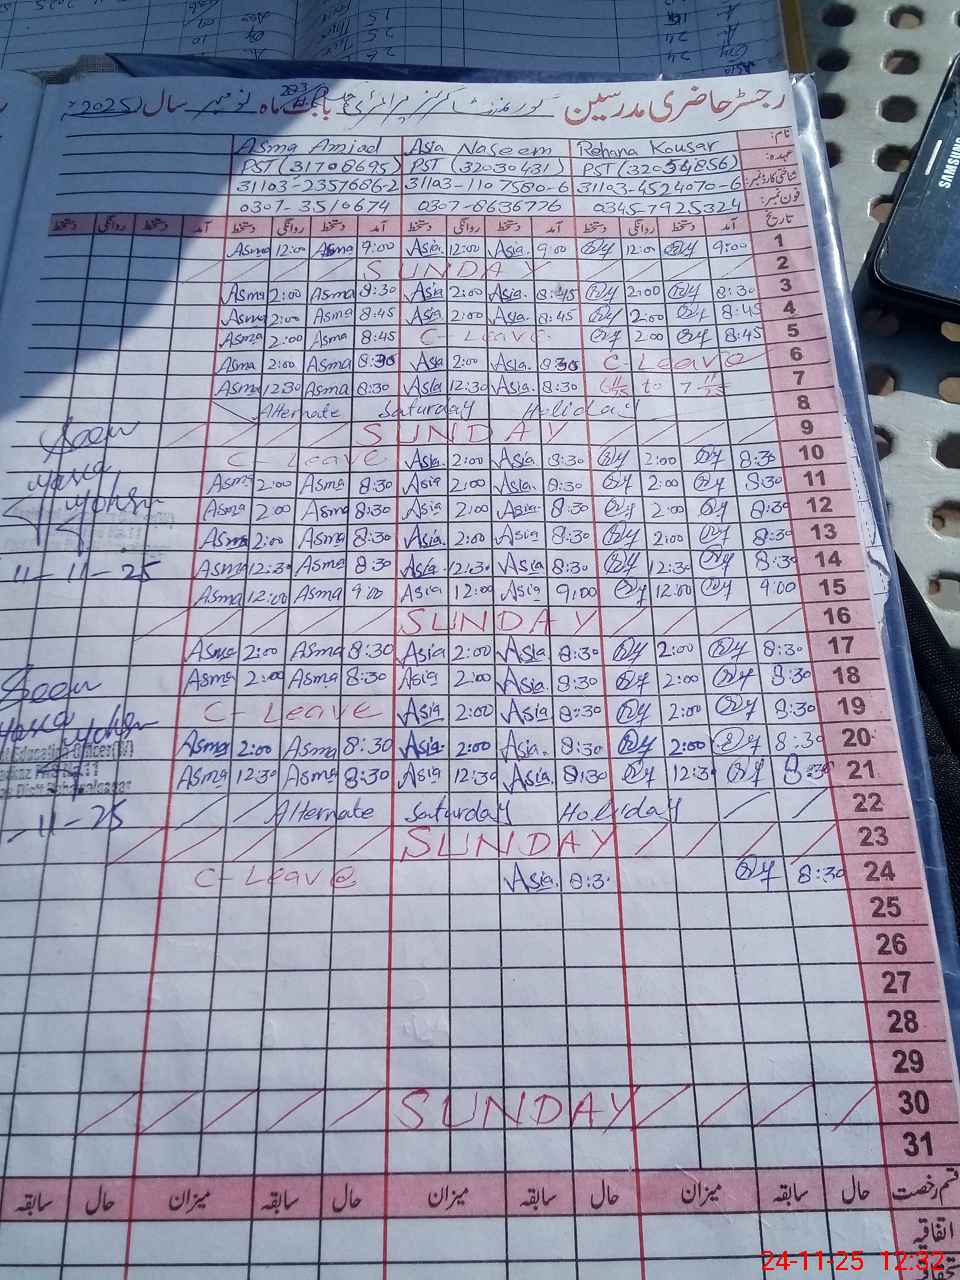 رجسٹر حاضری مدرسین گورنمنٹ گرلز پرائمری بابت ماہ نومبر سال 2025
نام: Rehana Kousar Asia Naseem Asma Amjad
عہدہ: PST (32054856) PST (32030431) PST (31708695)
شناختی کارڈ نمبر: 31103-4524070-6 31103-1107580-6 31103-2357686-2
فون نمبر: 0345-7925324 0307-8636776 0307-3510674
تاریخ آمد دستخط روانگی دستخط آمد دستخط روانگی دستخط آمد دستخط روانگی دستخط آمد دستخط روانگی دستخط
Asma 12:00 Asma 9:00 Asia 12:00 Asia 9:00 12:00 9:00 1
SUNDAY 2
Asma 2:00 Asma 8:30 Asia 2:00 Asia 8:45 2:00 8:30 3
Asma 2:00 Asma 8:45 Asia 2:00 Asia 8:45 2:00 8:45 4
Asma 2:00 Asma 8:45 C-Leave 2:00 8:45 5
Asma 2:00 Asma 8:30 Asia 2:00 Asia 8:30 C-Leave 6
Asma 12:30 Asma 8:30 Asia 12:30 Asia 8:30 to 7
Alternate Saturday Holiday 8
SUNDAY 9
Seen
C-Leave Asia 2:00 Asia 8:30 2:00 8:30 10
Asma 2:00 Asma 8:30 Asia 2:00 Asia 8:30 2:00 8:30 11
Asma 2:00 Asma 8:30 Asia 2:00 Asia 8:30 2:00 8:30 12
Asma 2:00 Asma 8:30 Asia 2:00 Asia 8:30 2:00 8:30 13
11-11-25 Asma 12:30 Asma 8:30 Asia 12:30 Asia 8:30 12:30 8:30 14
Asma 12:00 Asma 9:00 Asia 12:00 Asia 9:00 12:00 9:00 15
SUNDAY 16
Asma 2:00 Asma 8:30 Asia 2:00 Asia 8:30 2:00 8:30 17
Seen Asma 2:00 Asma 8:30 Asia 2:00 Asia 8:30 2:00 8:30 18
C-Leave Asia 2:00 Asia 8:30 2:00 8:30 19
Asma 2:00 Asma 8:30 Asia 2:00 Asia 8:30 2:00 8:30 20
Asma 12:30 Asma 8:30 Asia 12:30 Asia 8:30 12:30 8:30 21
-11-25 Alternate Saturday Holiday 22
SUNDAY 23
C-Leave Asia 8:30 8:30 24
25
26
27
28
29
SUNDAY 30
31
قسم رخصت حال سابقہ میزان حال سابقہ میزان حال سابقہ میزان حال سابقہ
اتفاقیہ
24-11-25 12:32
SAMSUNG